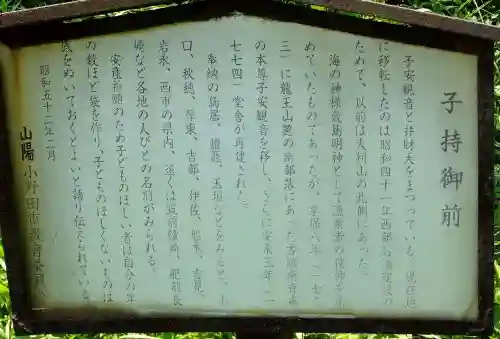 子持御前
子安観音と弁財天をまつっている。現在地
に移転したのは昭和四十一年西部
ためで、以前は大判山の北側にあった。
海の神様厳島明神として漁業者の信仰を
めていたものであったが、享保八年(一七
三)に龍王山麓の南部落にあった
の本尊子安観音を移し、さらに安永三年(一
七七四)堂舎が再建された。
奉納の鳥居、燈籠、玉垣などをみると、
口、秋穂、厚東、吉部、伊佐、於福、吉見、
岩永、西市の県内、遠くは筑前
崎など各地の人びとの名前がみられる。
安産祈願のため子どものほしい者は自分の年
の数ほど袋を作り、子どものほしくないものは
底をぬいておくとよいと語り伝えられている。
昭和五十二年二月
山陽小野田市教育委員会